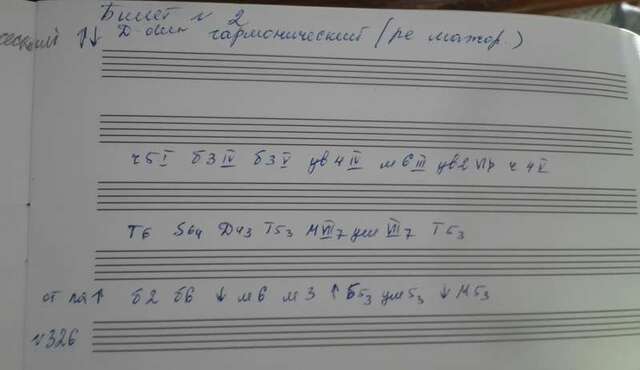 Билет № 2
ческий ↑↓ D-dur гармонический (ре мажор)
ч5 I б3 IV б3 V ув4 IV м6 III ув2 VIb ч4 V
T6 S64 D43 T53 МVII7 умVII7 T53
от ля↑ б2 б6 ↓ м6 м3 ↑ Б53 ум53 ↓ М53
№326